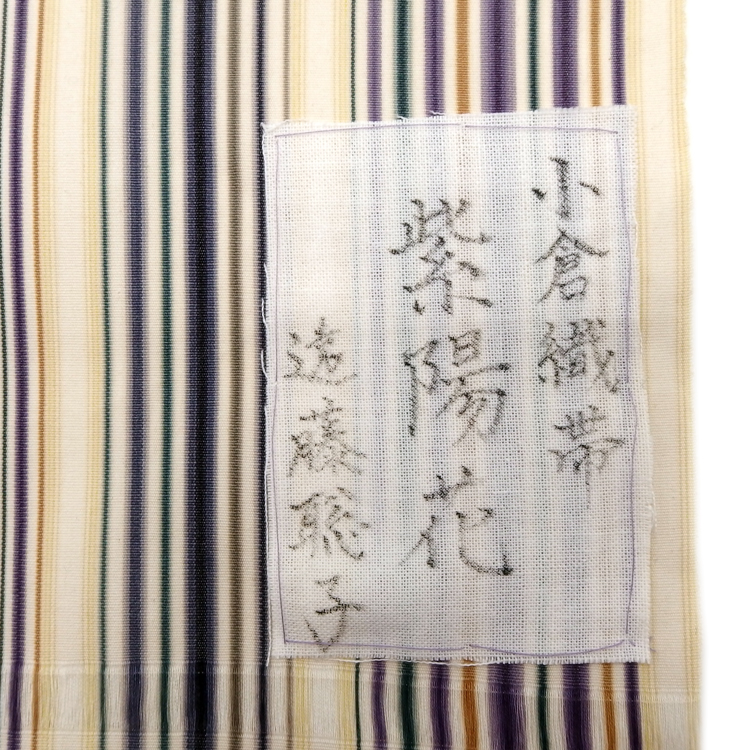 小倉織帯
紫陽花
遠藤聡子